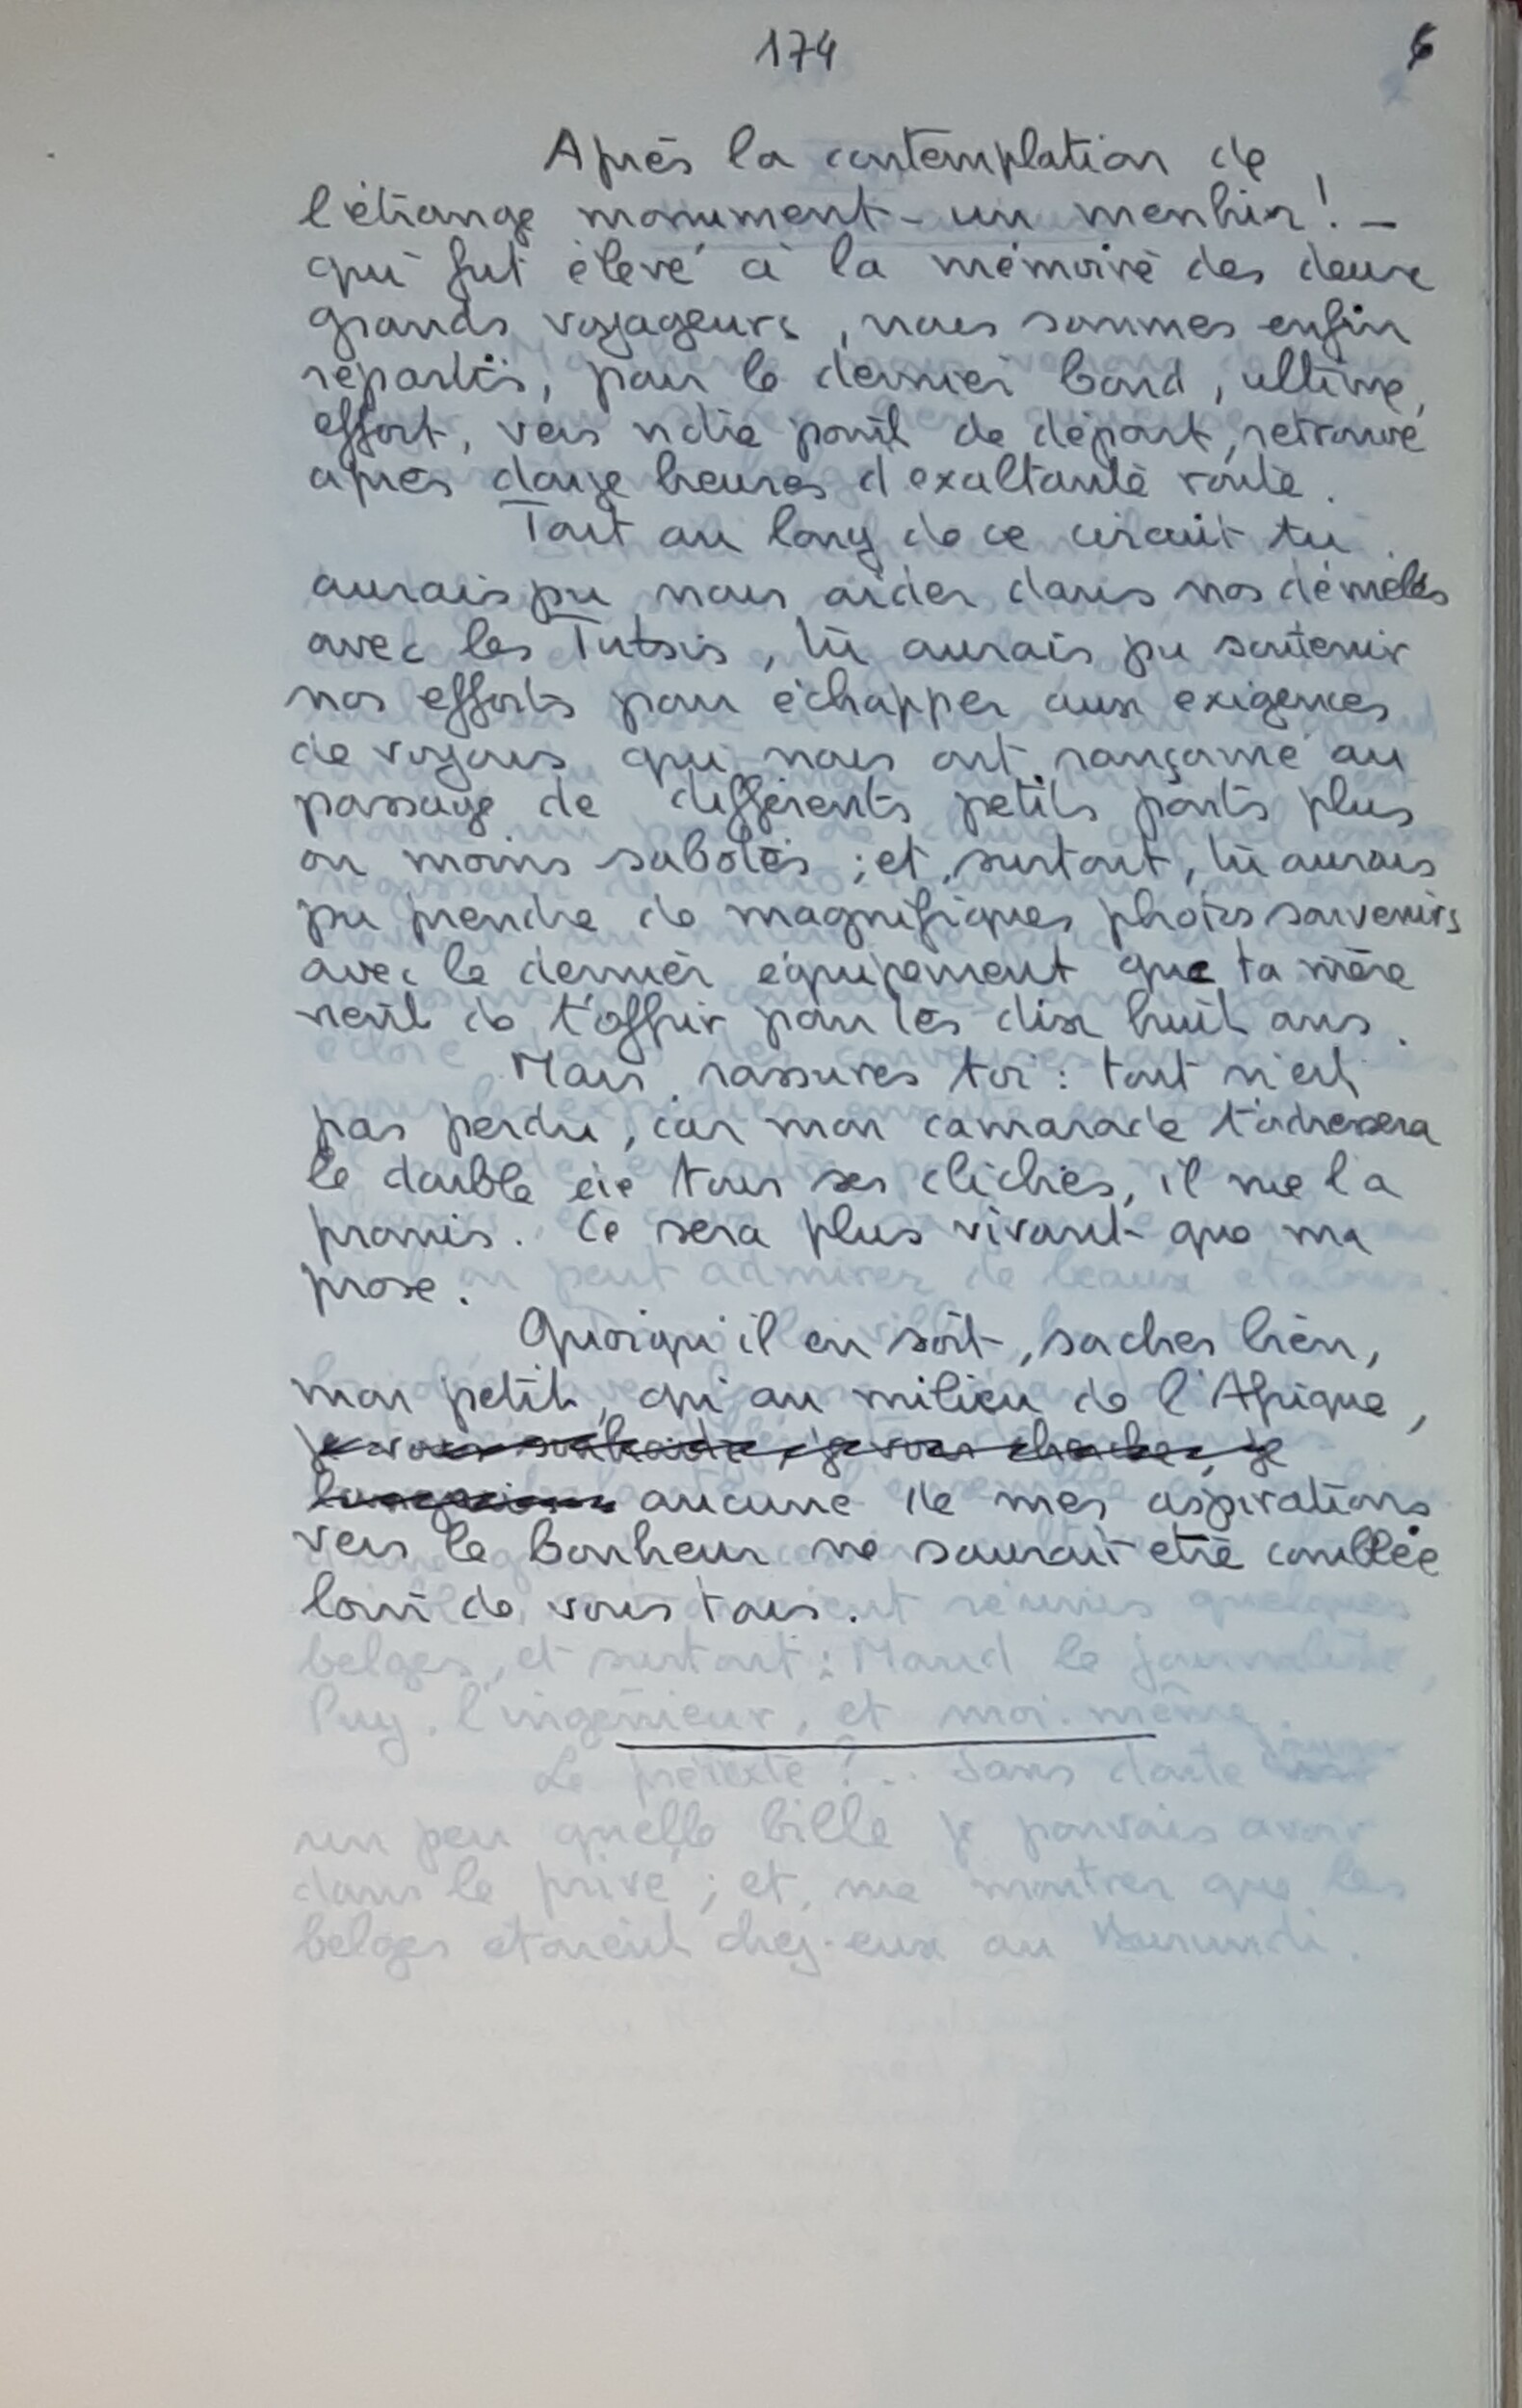 174 6
Après la contemplation de
l'étrange monument - un menhir ! -
qui fut élevé à la mémoire des deux
grands voyageurs, nous sommes enfin
repartis, pour le dernier bond, ultime
effort, vers notre point de départ, retrouvé
après douze heures d'exaltante route.
Tout au long de ce circuit tu
aurais pu nous aider dans nos démelés
avec les Tutsis, tu aurais pu soutenir
nos efforts pour échapper aux exigences
de voyous qui nous ont rançonné au
passage de différents petits ponts plus
ou moins sabotés ; et, surtout, tu aurais
pu prendre de magnifiques photos souvenirs
avec le dernier équipement que ta mère
vient de t'offrir pour tes dix huit ans.
Mais, rassures toi : tout n'est
pas perdu, car mon camarade t'adressera
le double de tous ses clichés, il me l'a
promis. Ce sera plus vivant que ma
prose.
Quoiqu'il en soit, saches bien,
mon petit, qu'au milieu de l'Afrique,
aucune de mes aspirations
vers le bonheur ne saurait être comblée
loin de vous tous.
belges, et surtout : Maud le journaliste,
Puy. l'ingénieur, et moi-même.
Le prétexte ?.. Sans doute
un peu quelle bille je pouvais avoir
dans le privé ; et, me montrer que les
belges étaient chez-eux au Burundi.